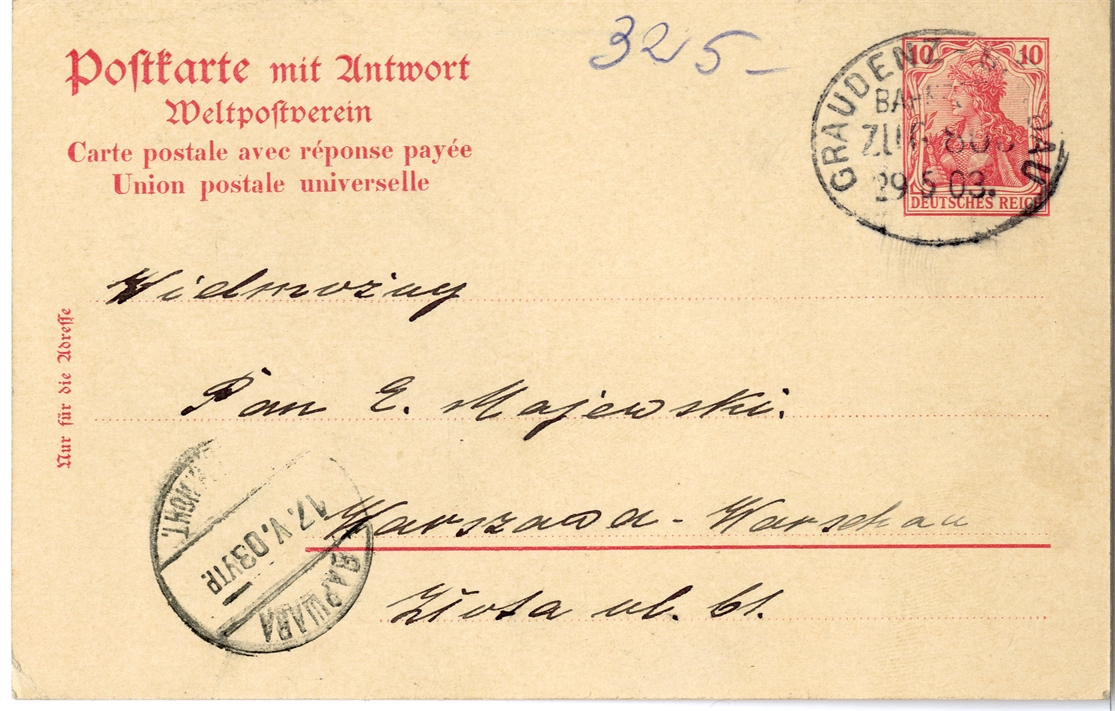 325-
Postkarte mit Antwort
Weltpostverein
Carte postale avec réponse payée
Union postale universelle
10 10
DEUTSCHES REICH
GRAUDENZ
ZUG
29 5 03.
Nur für die Adresse
Wielmożny
Pan E. Majewski.
Warszawa - Warschau
Złota ul. 61.
17.V.03 УТР.
ВАРШАВА